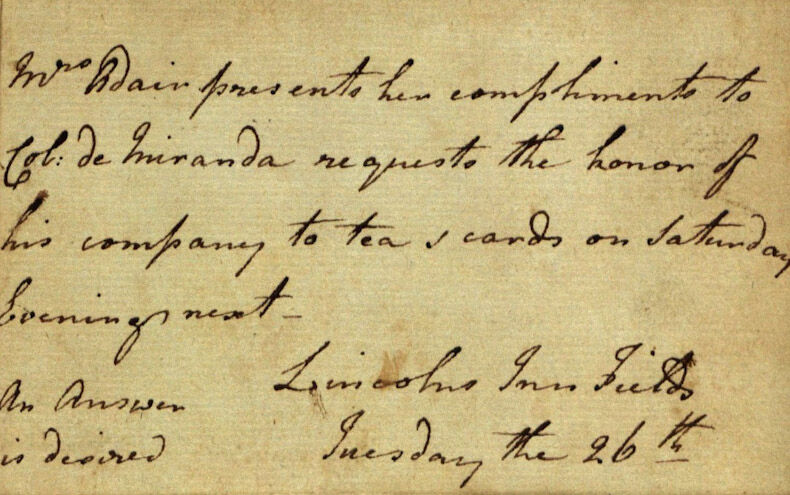 Mrs Adair presents her compliments to
Col: de Miranda requests the honor of
his company to tea & cards on Saturday
Evening next –
Lincolns Inn Fields
An Answer
is desired
Tuesday the 26th